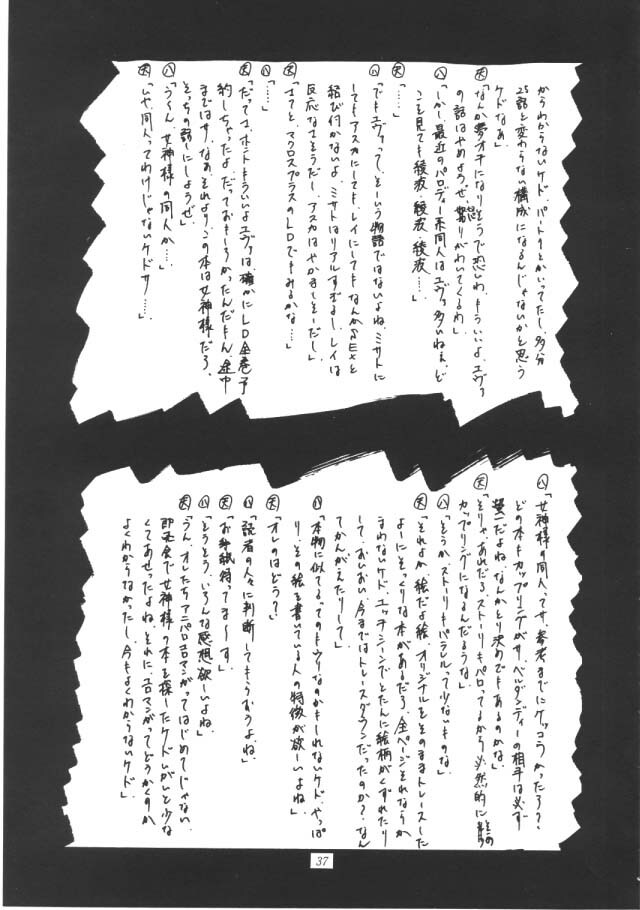 からわからないケド、パート9とかいってたし、多分
25話と変わらない構成になるんじゃないかと思う
ケドなぁ」
「なんか夢オチになりそうで恐いわ、もういいよ、エヴァ
の話はやめようぜ、怒りがわいてくるわ」
八「しかし最近のパロディー系同人はエヴァ多いねぇ、ど
こを見ても綾波、綾波、綾波……」
「……」
八「でもエヴァって、そーいう物語ではないよね、ミサトに
してもアスカにしても、レイにしてもなんかSEXと
結び付かないよ、ミサトはリアルすぎるし、レイは
反応なさそうだし、アスカはやかましそーだし」
「さてと、マクロスプラスのLDでもみるかな…」
八「……」
「だってさ、ホントもういいよエヴァは、確かにLD全巻予
約しちゃったよ、だっておもしろかったんだもん、途中
まではサ、なぁそれよりこの本は女神様だろ、
そっちの話にしようぜ」
八「うーん、女神様の同人か…」
「いや、同人ってわけじゃないケドサ……」
八「女神様の同人ってサ、参考までにケッコうかったろ?
どの本もカップリングがサ、ベルダンディーの相手は必ず
螢一だよね、なんかとり決めでもあるのかな」
「そりゃあれだろ、ストーリもパロってるから必然的に
カップリングになるんだろうな」
八「そうか、ストーリもパラレルって少ないものな」
「それよか絵だよ絵、オリジナルをそのままトレースした
よーにそっくりな本があるだろ、全ページそれならか
まわないケド、エッチシーンでとたんに絵柄がくずれたり
して、おいおい、今まではトレースダウンだったのか?なん
てかんがえたりして」
八「本物に似てるってのもウリなのかもしれないケド、やっぱ
り、その絵を書いている人の特徴が欲しいよね」
「オレのはどう?」
八「読者の人々に判断してもらおうよね」
「お手紙待ってま〜す」
八「そうそう、いろんな感想欲しいよね」
「うん、オレたちアニパロエロマンガってはじめてじゃない、
即売会で女神様の本を探したケドいがいと少な
くてあせったよね、それにエロマンガってどうかくのか
よくわからなかったし、今もよくわからないケド」
37